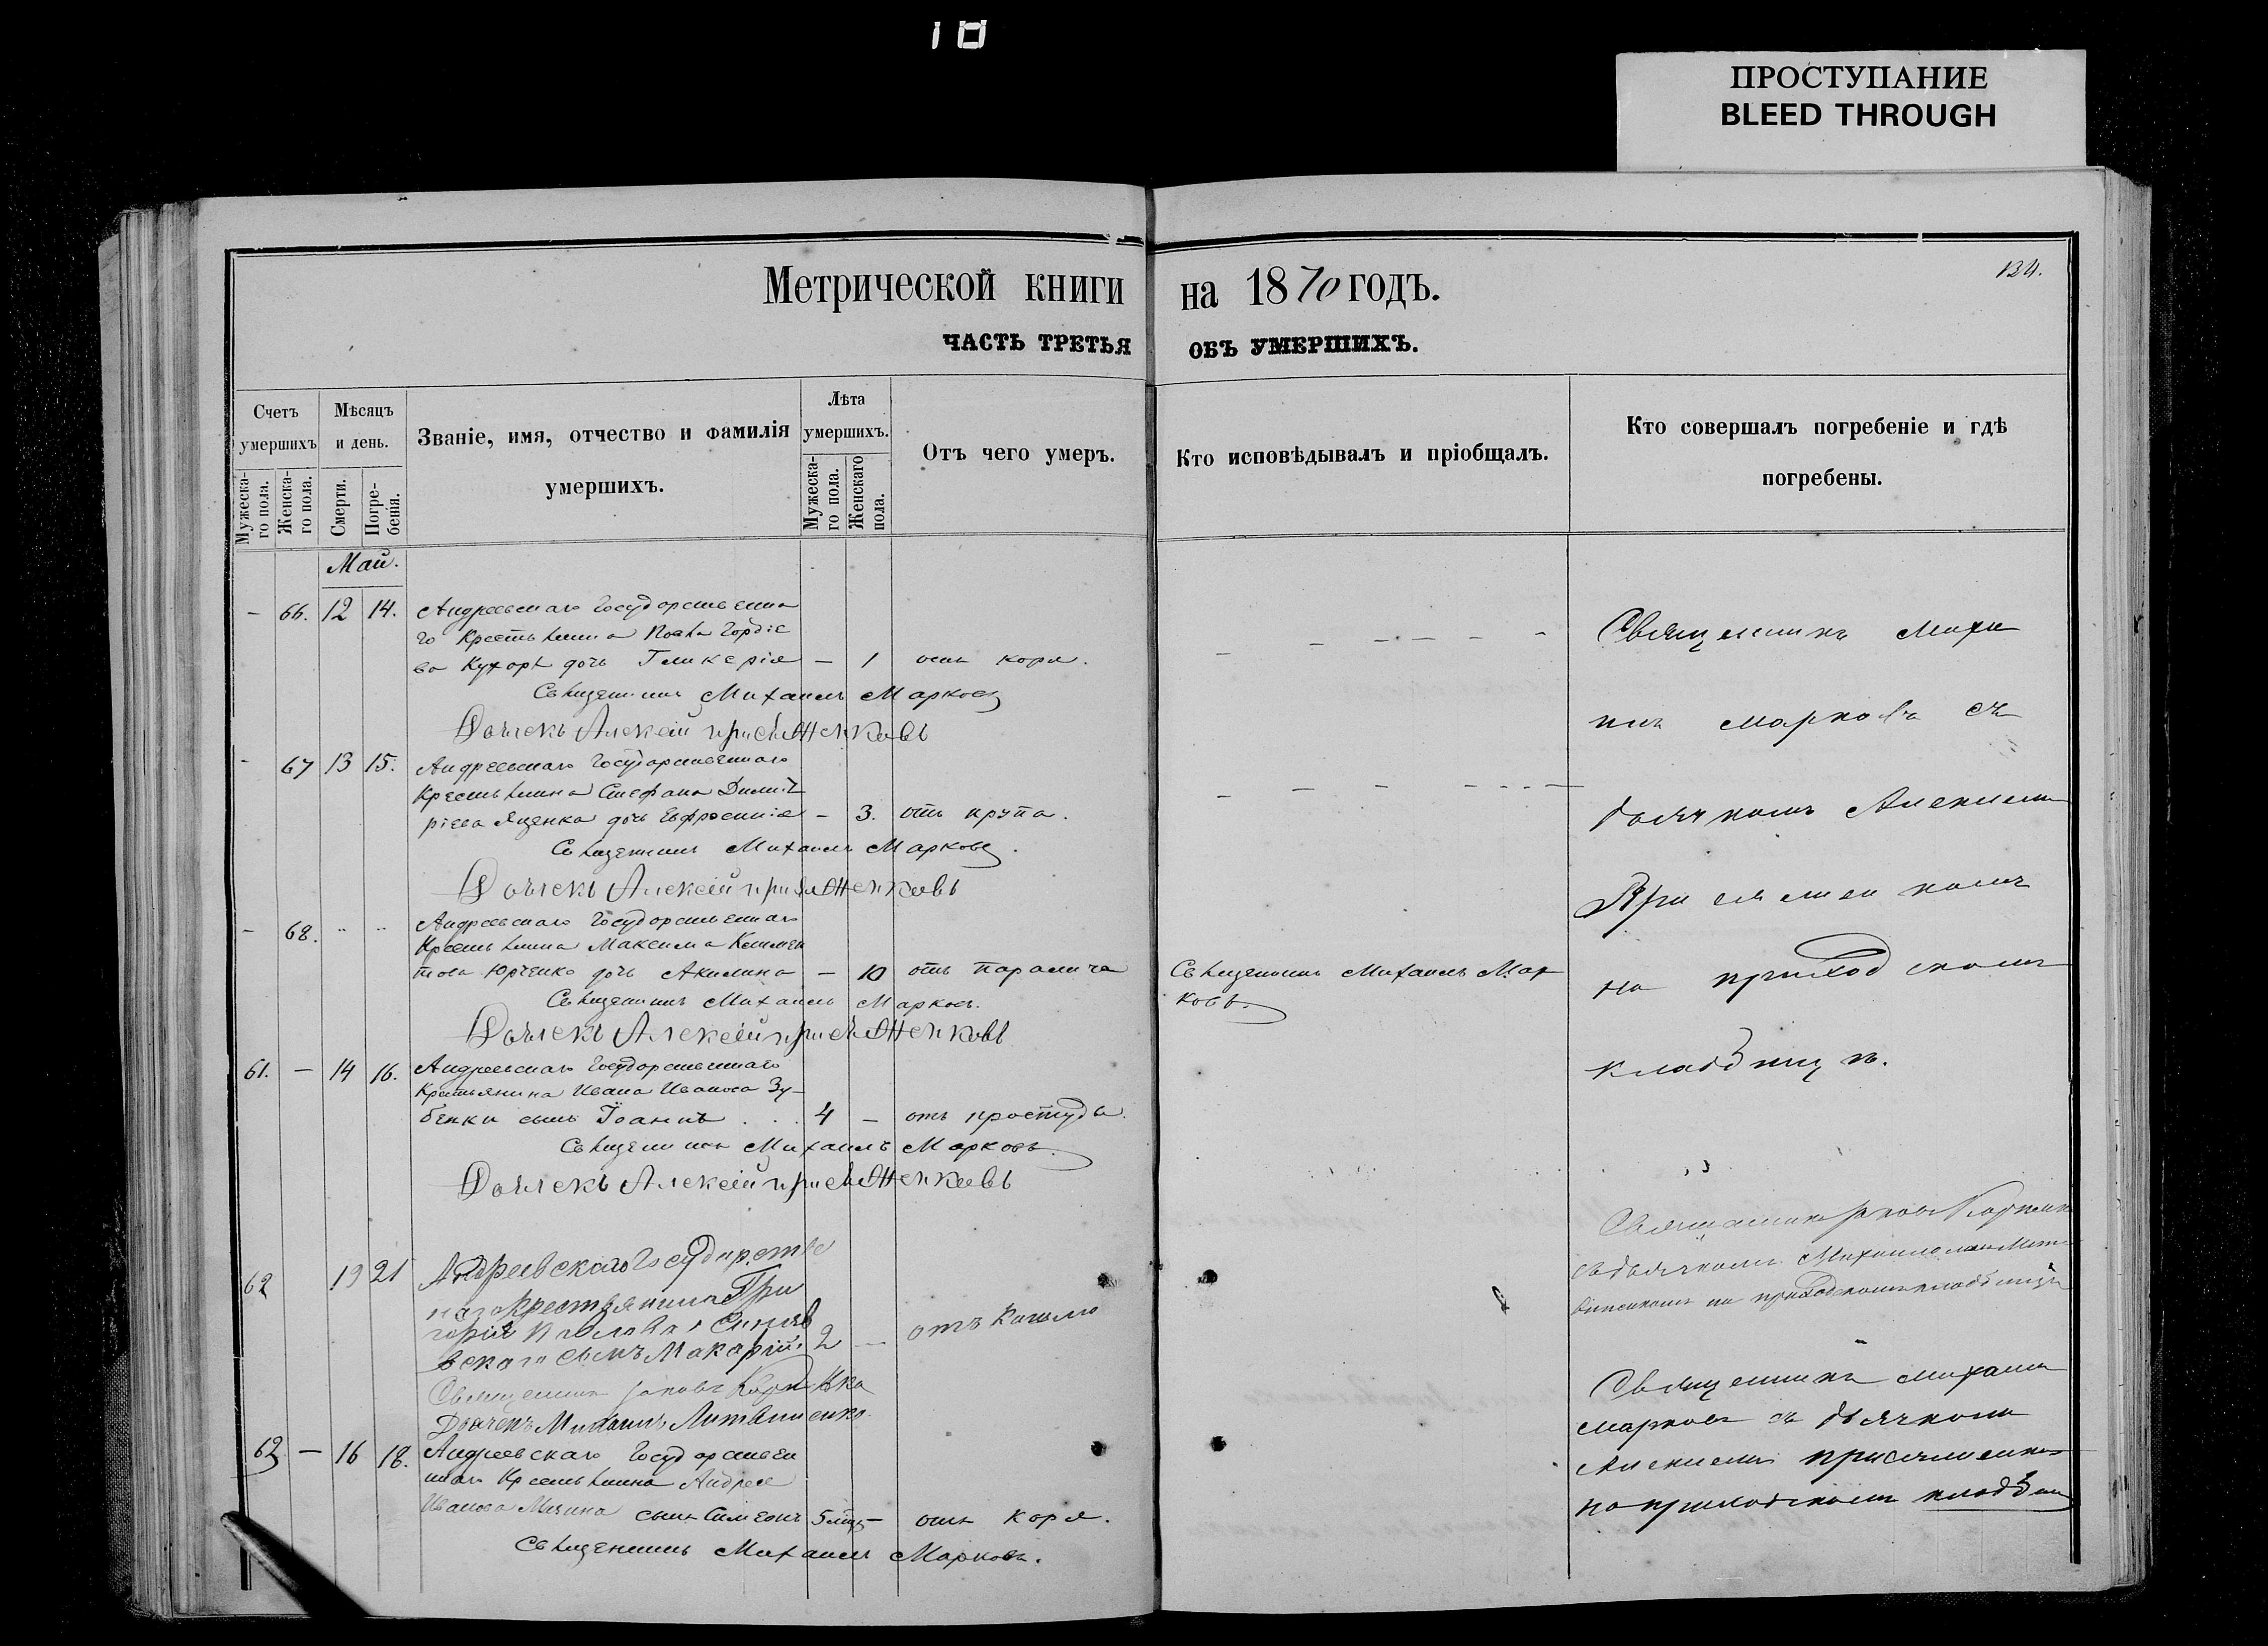 18
ПРОСТУПАНИЕ
BLEED THROUGH
134.
Метрической книги на 1870 годъ.
ЧАСТЬ ТРЕТЬЯ ОБЪ УМЕРШИХЪ.
Счетъ умершихъ
Мѣсяцъ и день.
Званіе, имя, отчество и фамилія умершихъ.
Лѣта умершихъ.
Отъ чего умеръ.
Кто исповѣдывалъ и пріобщалъ.
Кто совершалъ погребеніе и гдѣ погребены.
Мужеска-го пола.
Женска-го пола.
Смерти.
Погре-бенія.
Мужеска-го пола.
Женскаго пола.
Май.
– 66. 12 14. Андреевскаго Государственна
го Крестьянина Гордіе
ва Кухоря дочь Гликерія – 1 отъ кори.
Священникъ Михаилъ Марковъ
Дьячекъ Алексѣй
- 67 13 15. Андреевскаго Государственнаго
Крестьянина Стефана Димит
ріева Яценка дочь Евфросинія – 3. отъ крупа.
Священникъ Михаилъ Марковъ.
Дьячекъ Алексѣй
- 68. " " Андреевскаго Государственнаго
Крестьянина Максима Климен
това Юрченко дочь Акилина – 10 отъ паралича
Священникъ Михаилъ Марковъ.
Дьячекъ Алексѣй
Священникъ Михаилъ Мар
ковъ.
61. – 14 16. Андреевскаго Государственнаго
Крестьянина Ивана Иванова Зу-
бенки сынъ Іоаннъ . . . 4 – отъ простуды.
Священникъ Михаилъ Марковъ.
Дьячекъ Алексѣй
Священникъ Михаи
лъ Марковъ съ
дьячкомъ Алексѣемъ
на приходскомъ
кладбищѣ.
62 19 21 Андреевскаго Государстве
наго крестьянина Гри
горія Павлова Синяв
вскаго сынъ Макарій. 2 – отъ кашлю
Священникъ Іаковъ
Дьячекъ Михаилъ Литвиненко.
Священникъ Іаковъ
съ дьячкомъ Михаиломъ Литв
виненкомъ на приходскомъ кладбищѣ
63 – 16 18. Андреевскаго Государствен
наго Крестьянина Андрея
Иванова сынъ Симеонъ 5 мѣц – отъ кори.
Священникъ Михаилъ Марковъ.
Священникъ Михаилъ
Марковъ съ дьячкомъ
Алексѣемъ
на приходскомъ кладбищ